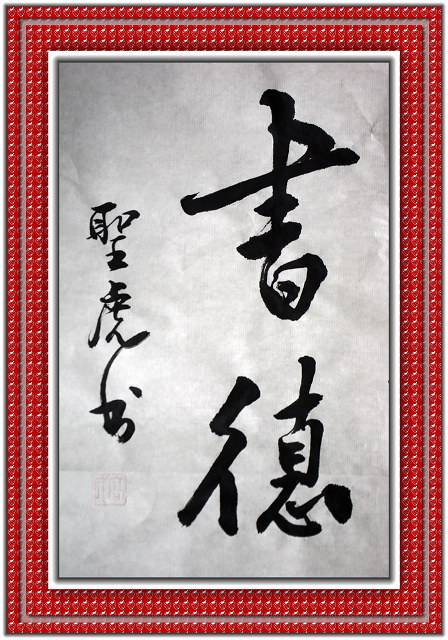 書德
聖虎书